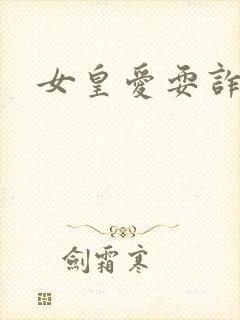 女皇愛耍詐
劍霜寒